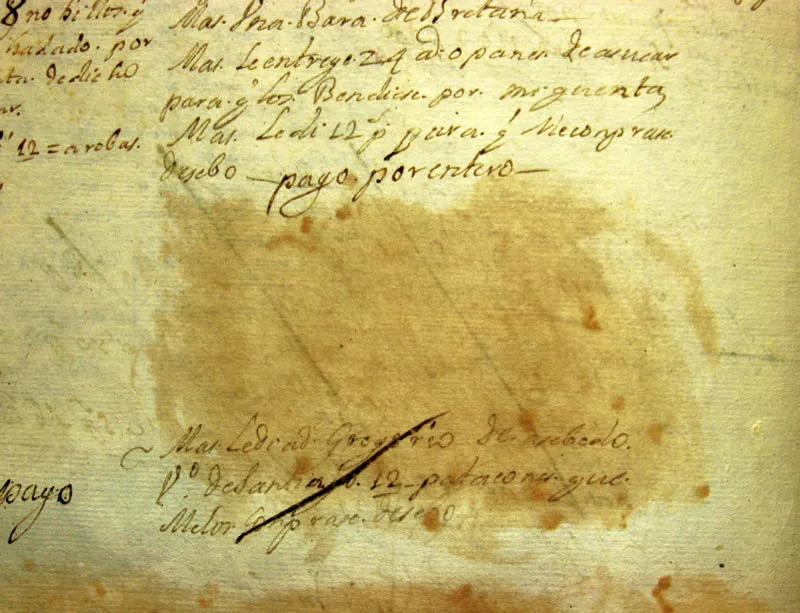 8 no billos. y
hadado. por
ta. dedicho
ar.
12 = arobas.
Mas. Una. Bara. de Bretaña
Mas. Le entrege 24 ad.o panes. de asucar
para. q̃ los. Bendiese. por. mi. quenta
Mas. Le di 12 p.s para. q̃ Mecomprase
desebo — pago. por entero —
Mas. Ledi ad. Gregorio de asebedo.
P.o desantiago. 12 — patacones. que.
Melos. Comprase. desebo
pago